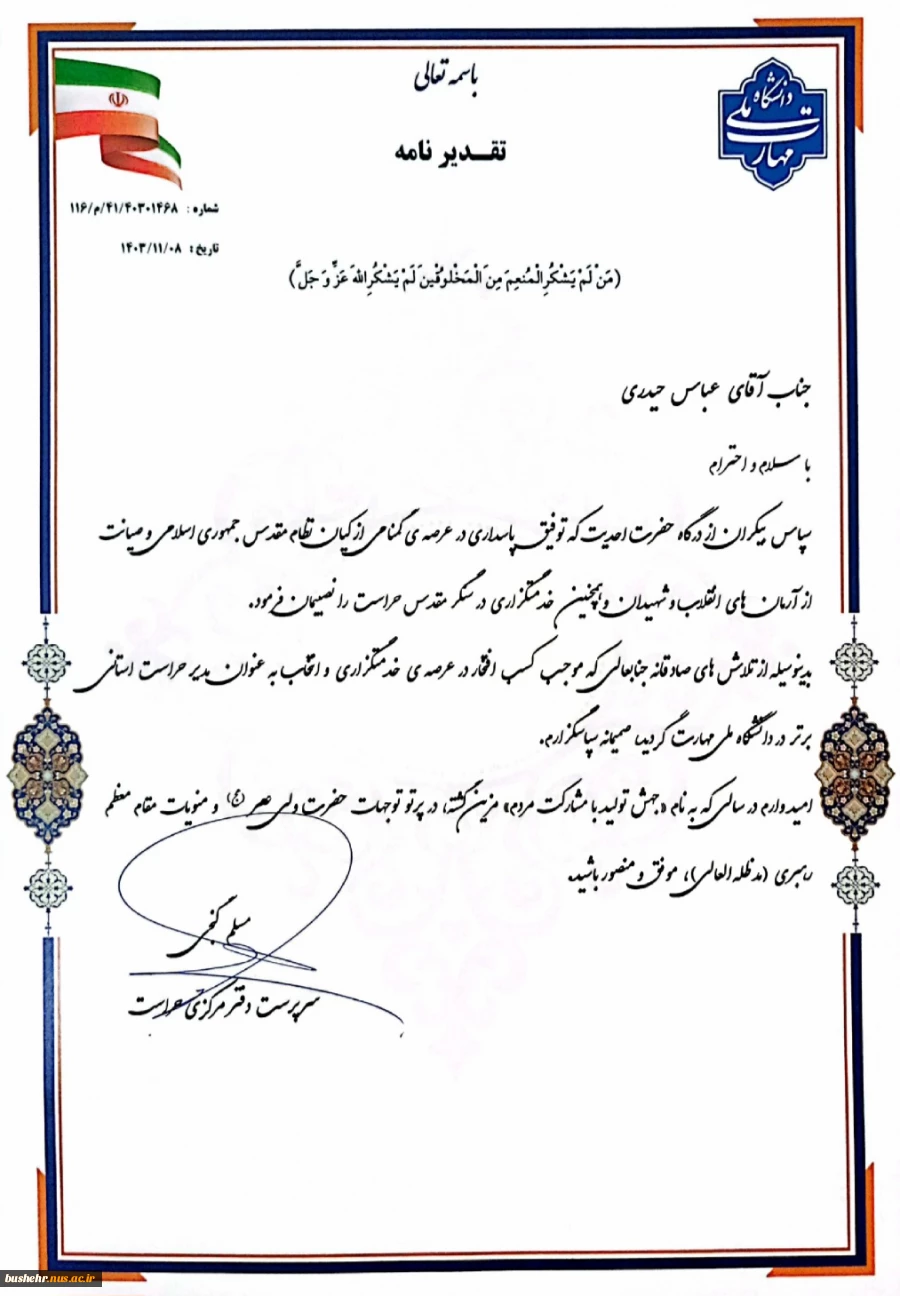 باسمه تعالی
دانشگاه
ملی
مهارت
تقـدیر نامه
شماره : ۱۱۶/م/۴۱/۴۰۳۰۱۴۶۸
تاریخ : ۱۴۰۳/۱۱/۰۸
(مَنْ لَمْ یَشْکُرِ الْمُنعِمَ مِنَ الْمَخْلوُقینَ لَمْ یَشْکُرِ اللهَ عَزَّ وَ جَلَّ)
جناب آقای عباس حیدری
با سلام و احترام
سپاس بیکران از درگاه حضرت احدیت که توفیق پاسداری در عرصه ی گمنامی از کیان نظام مقدس جمهوری اسلامی و صیانت
از آرمان های انقلاب و شهیدان و همچنین خدمتگزاری در سنگر مقدس حراست را نصیبمان فرمود.
بدینوسیله از تلاش های صادقانه جنابعالی که موجب کسب افتخار در عرصه ی خدمتگزاری و انتخاب به عنوان مدیر حراست استانی
برتر در دانشگاه ملی مهارت گردید، صمیمانه سپاسگزارم.
امیدوارم در سالی که به نام «جهش تولید با مشارکت مردم» مزین گشته، در پرتو توجهات حضرت ولی عصر (عج) و منویات مقام معظم
رهبری (مدظله العالی)، موفق و منصور باشید.
مسلم گنجی
سرپرست دفتر مرکزی حراست
bushehr.nus.ac.ir